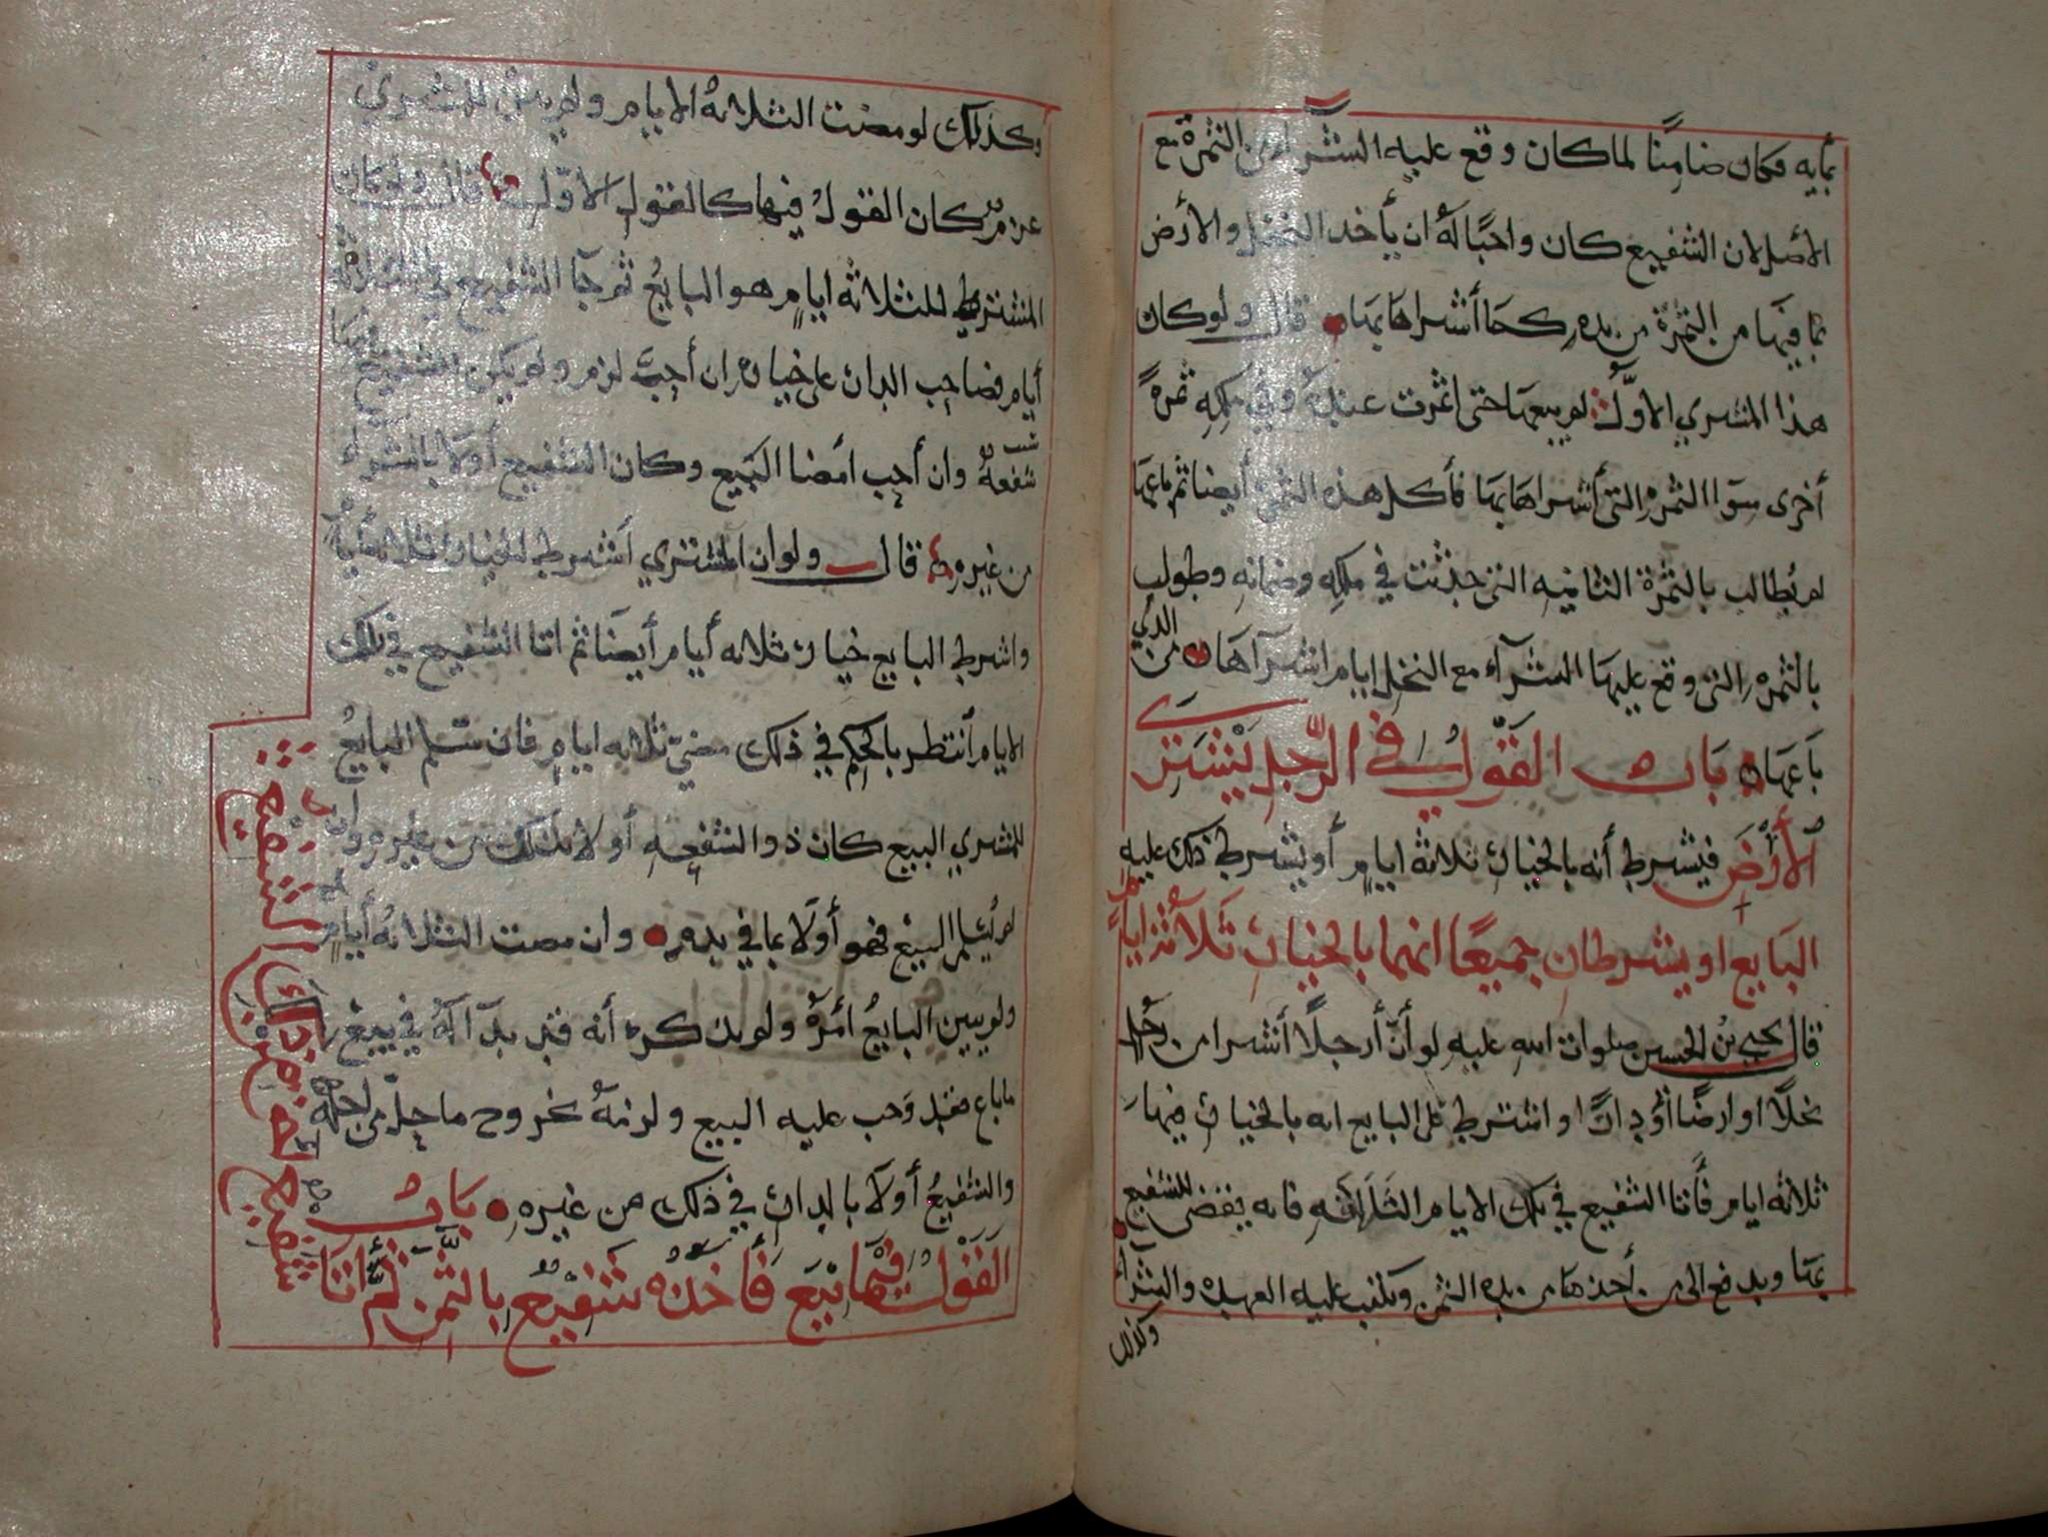 بمايه فكان ضامنا لما كان وقع عليه الشرآ من الثمرة مع
الأصل لان الشفيع كان واجبا له ان يأخد النخل والأرض
بما فيها من الثمرة من يده كما أشراها بها قال ولو كان
هذا المشري الاول لم يبيعها حتى اثمرت عنده وفي ملكه ثمرة
أخرى سوا الثمره التي أشراها بها فأكل هذه الثمرة أيضا ثم باعها
لم يطالب بالثمرة الثانيه التي حدثت في ملكه وضمانه وطولب
بالثمره التي وقع عليها الشرآء مع النخل ايام اشرآها من الذي
باعها باب القول في الرجل يشتري
الأرض فيشرط أنه بالخيار ثلاثة ايام أو يشرط ذلك عليه
البايع او يشرطان جميعا انهما بالخيار ثلاثة ايام
قال يحيى بن الحسين صلوات الله عليه لو أن رجلا أشرا من رجل
نخلا او ارضا أو دارا واشترط على البايع انه بالخيار فيها
ثلاثه ايام فأتا الشفيع في تلك الايام الثلاثه فانه يقضى للشفيع
بها ويدفع الى من أخذها من يده الثمن ويكتب عليه العهده والشرآء
وكذلك
وكذلك لو مضت الثلاثة الايام ولم يبن للمشري
عزم كان القول فيها كالقول الأول قال ولو كان
المشترط للثلاثة ايام هو البايع ثم جآ الشفيع في الثلاثة
أيام فصاحب الدار على خياره ان أحب لزم ولم يكن للشفيع فيها
شفعة وان أحب امضا البيع وكان الشفيع أولا بالشراء
من غيره قال ولو ان المشتري أشرط الخيار ثلاثة أيام
واشرط البايع خيار ثلاثه أيام أيضا ثم اتا الشفيع في تلك
الايام أنتظر بالحكم في ذلك مضي ثلاثه ايام فان سلم البايع
للمشري البيع كان ذو الشفعه أولا بذلك من غيره وان
لم يسلم البيع فهو أولا بما في يده وان مضت الثلاثة أيام
ولم يبين البايع أمره ولم يذكر أنه قد بدا له في بيع
ما باع فقد وجب عليه البيع ولزمه خروج ما جل من جله
والشفيع أولا بالدار في ذلك من غيره باب
القول فيما بيع فأخذه شفيع بالثمن ثم اتا
شفيع اخر من ذلك الشفيع